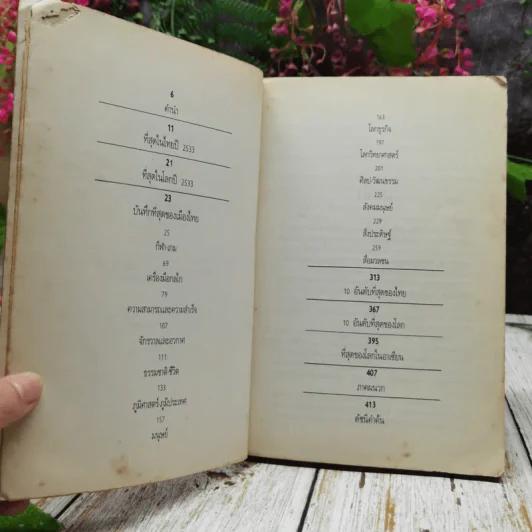 6
คำนำ
11
ที่สุดในไทยปี 2533
21
ที่สุดในโลกปี 2533
23
บันทึกที่สุดของเมืองไทย
25
กีฬา-เกม
69
เครื่องมือกลไก
79
ความสามารถและความสำเร็จ
107
จักรวาลและอวกาศ
111
ธรรมชาติ-ชีวิต
133
ภูมิศาสตร์-ภูมิประเทศ
157
มนุษย์
163
โลกธุรกิจ
197
โลกวิทยาศาสตร์
201
ศิลปะ-วัฒนธรรม
225
สังคมมนุษย์
229
สิ่งประดิษฐ์
259
สื่อมวลชน
313
10 อันดับที่สุดของไทย
367
10 อันดับที่สุดของโลก
395
ที่สุดของโลกในอาเซียน
407
ภาคผนวก
413
ดัชนีคำค้น